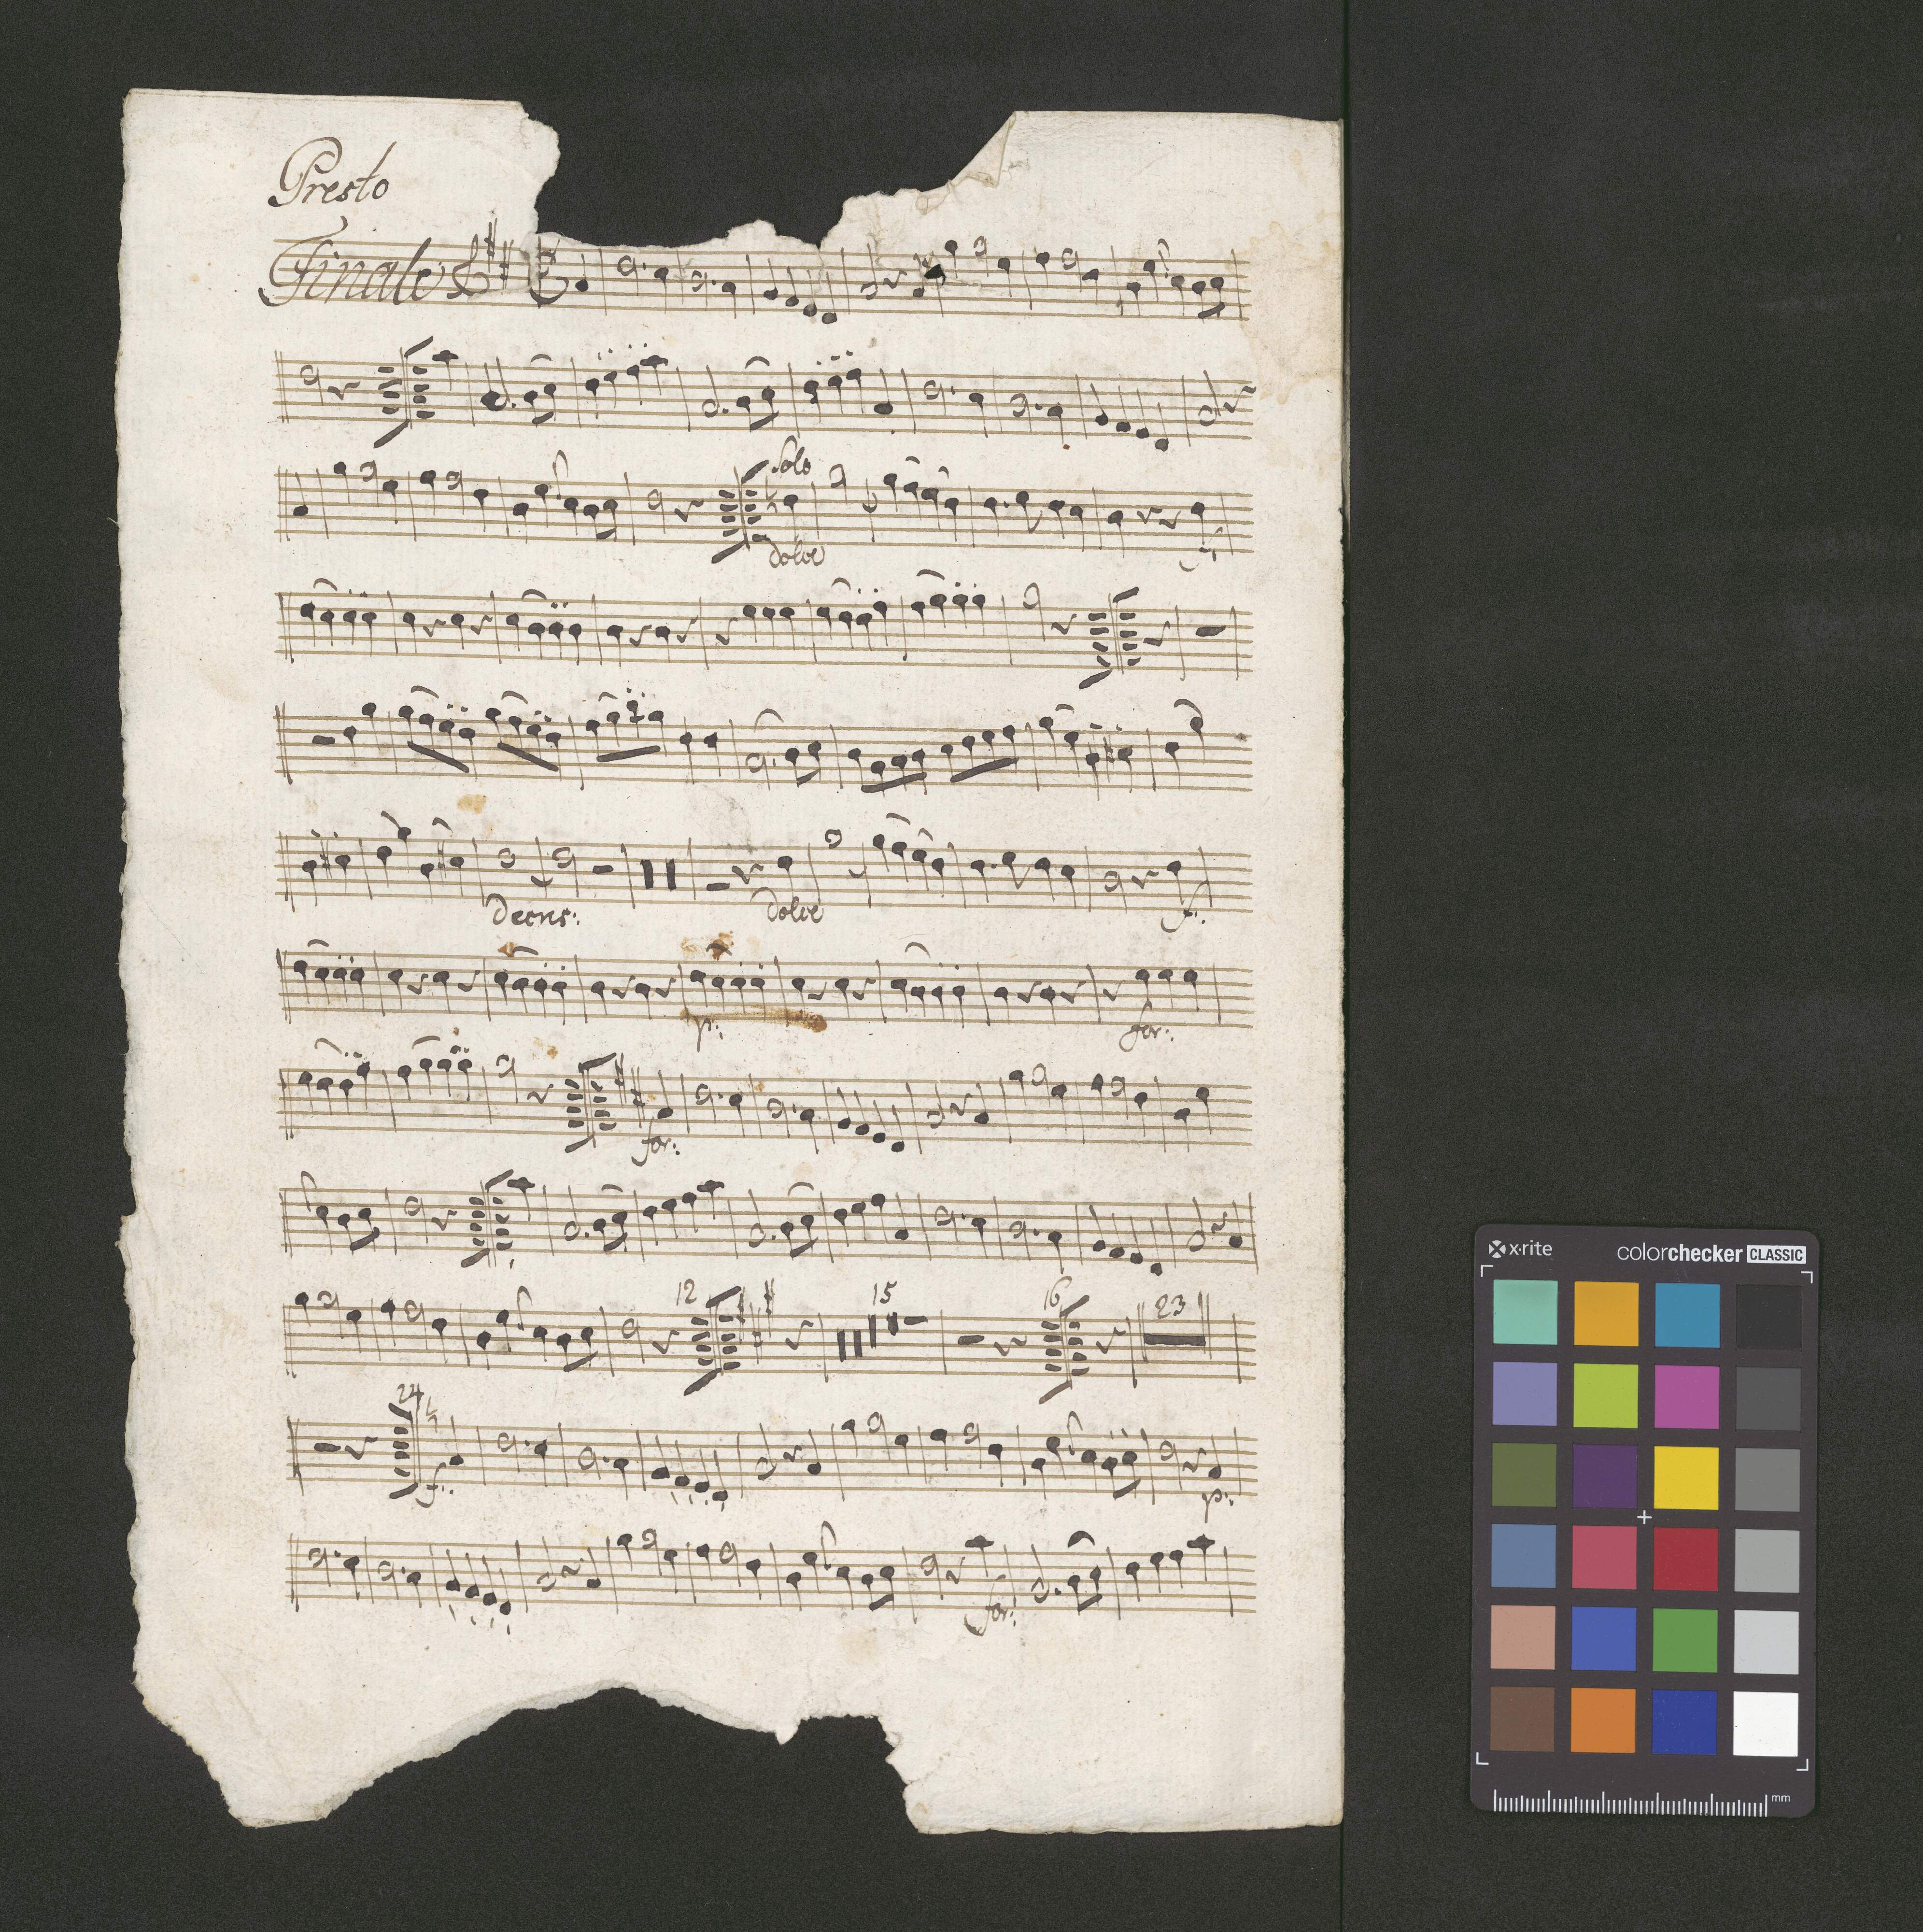 Presto
Finale
Solo
dolce
f:
decres:
dolce
f:
p:
for:
for:
12
15
16
23
24
f:
p:
for:
x·rite
colorchecker CLASSIC
mm